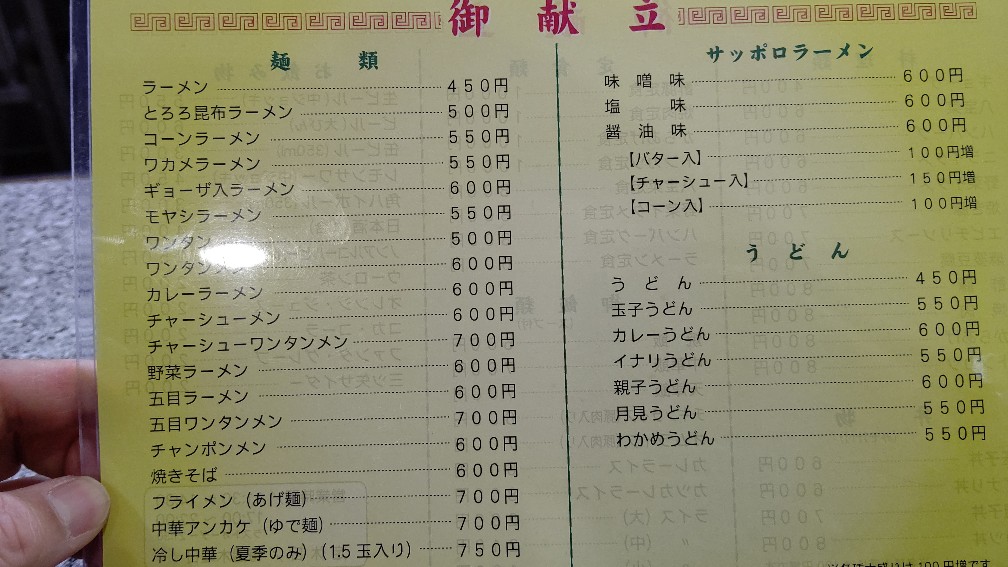 御献立
麺類
ラーメン 450円
とろろ昆布ラーメン 500円
コーンラーメン 550円
ワカメラーメン 550円
ギョーザ入ラーメン 600円
モヤシラーメン 550円
ワンタン 500円
ワンタンメン 600円
カレーラーメン 600円
チャーシューメン 600円
チャーシューワンタンメン 700円
野菜ラーメン 600円
五目ラーメン 600円
五目ワンタンメン 700円
チャンポンメン 600円
焼きそば 600円
フライメン(あげ麺) 700円
中華アンカケ(ゆで麺) 700円
冷し中華(夏季のみ)(1.5玉入り) 750円
サッポロラーメン
味噌味 600円
塩味 600円
醤油味 600円
【バター入】 100円増
【チャーシュー入】 150円増
【コーン入】 100円増
うどん
うどん 450円
玉子うどん 550円
カレーうどん 600円
イナリうどん 550円
親子うどん 600円
月見うどん 550円
わかめうどん 550円
100円増です